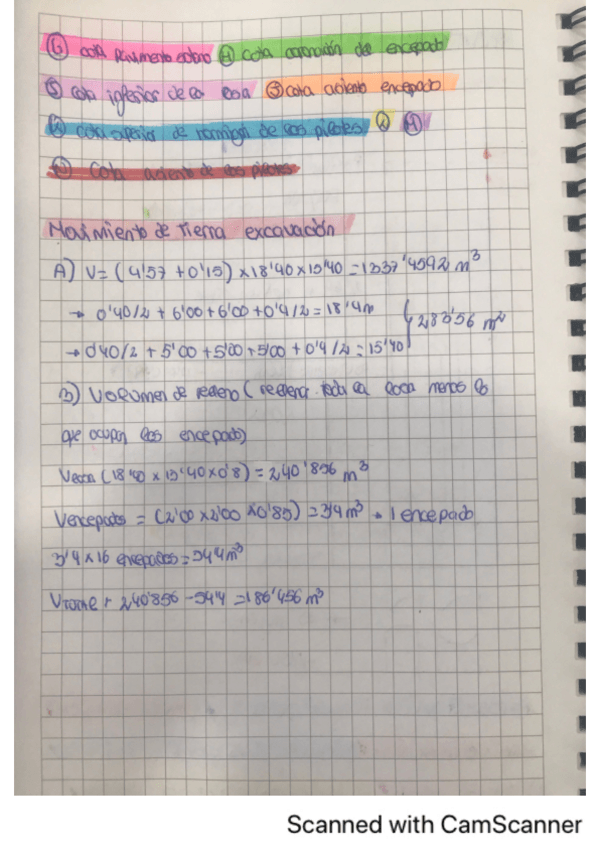 G cota pavimento sotano H cota coronación del encepado
I cota inferior de la losa J cota asiento encepado
K cota superior de hormigon de los pilotes L M
N Cota asiento de los pilotes
Movimiento de tierra excavación
A) V= (4'57 + 0'15) × 18'40 × 15'40 = 1337'4592 m³
→ 0'40/2 + 6'00 + 6'00 + 0'4/2 = 18'4m
283'56 m²
→ 040/2 + 5'00 + 5'00 + 5'00 + 0'4/2 = 15'40
B) Volumen de relleno ( rellenar toda la losa menos lo
que ocupan los encepado)
(18'40 × 15'40 × 0'8) = 240'856 m³
Vencepados = (2'00 × 2'00 × 0'85) = 3'4m³ → 1 encepado
3'4 × 16 encepados = 544m³
240'856 - 544 = 186'456 m³
Scanned with CamScanner